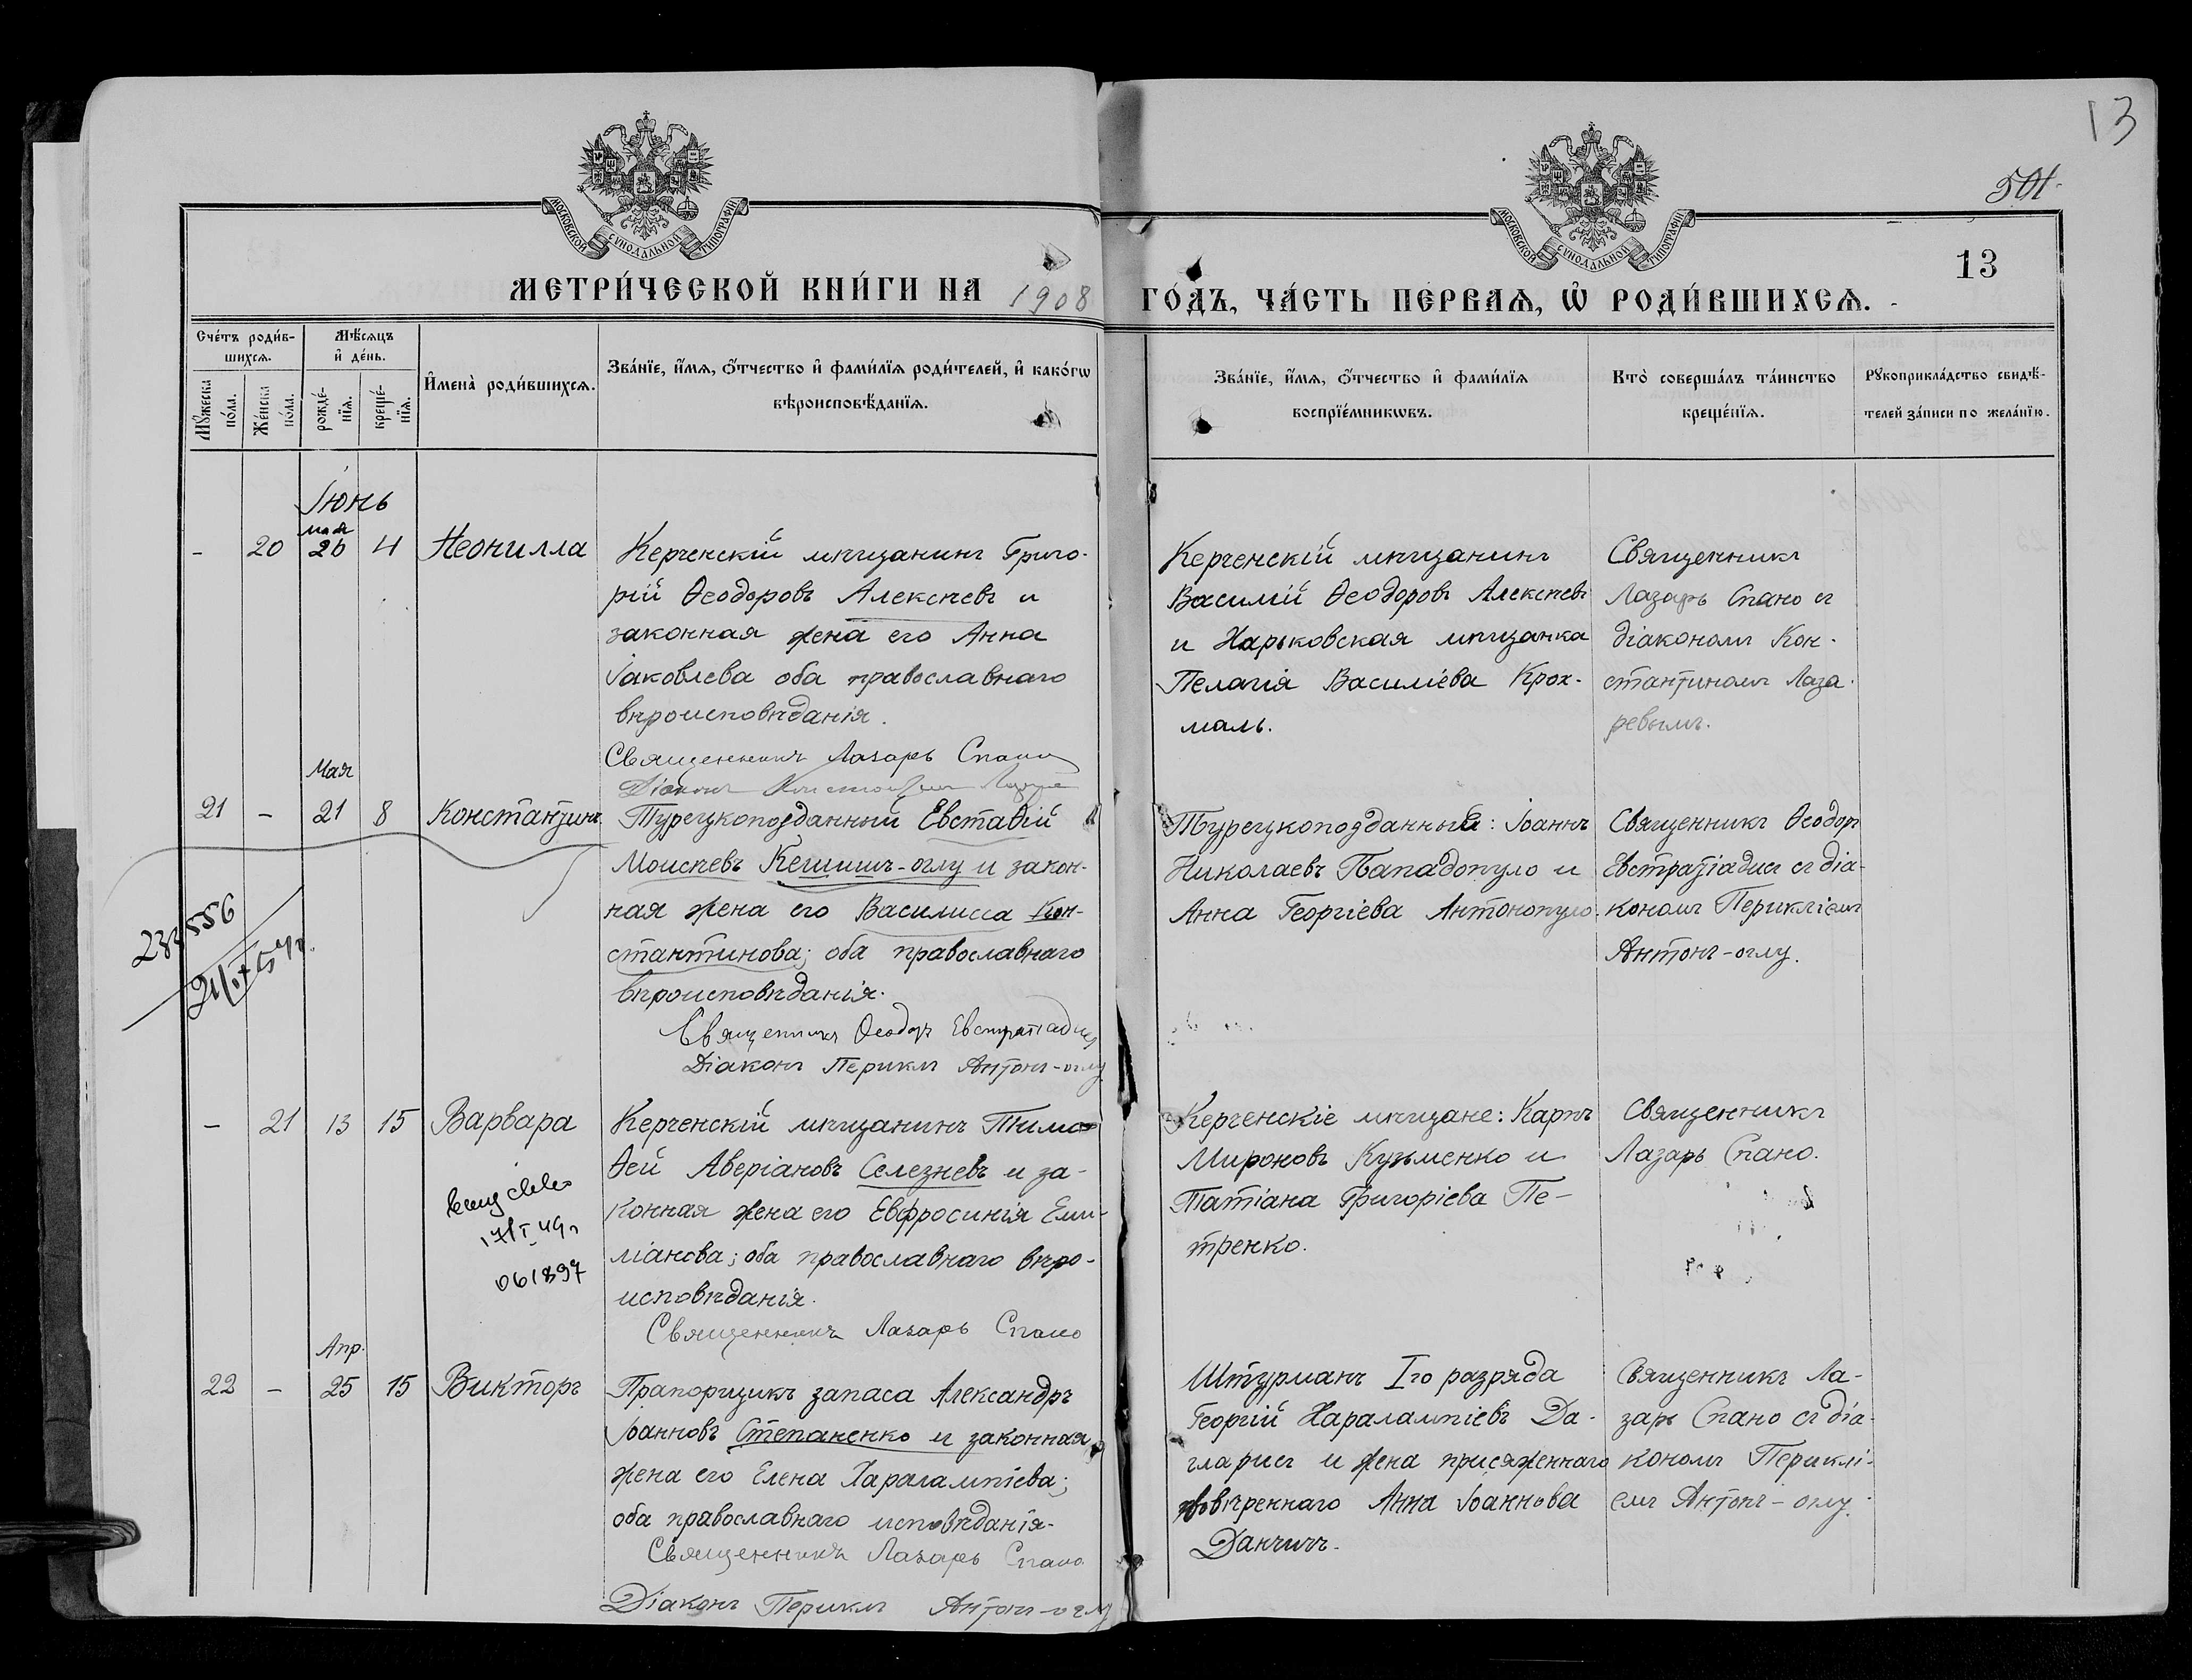 13
501
13
МОСКОВСКОЙ СѴНОДАЛЬНОЙ ТИПОГРАФІИ
МОСКОВСКОЙ СѴНОДАЛЬНОЙ ТИПОГРАФІИ
МЕТРИ́ЧЕСКОЙ КНИ́ГИ НА 1908 ГО́ДЪ, ЧА́СТЬ ПЕ́РВАѦ, Ѡ҆ РОДИ́ВШИХСѦ.
Сче́тъ роди́в-
шихсѧ.
Мꙋ́жеска по́ла.
Же́нска по́ла.
Мѣ́сѧцъ
и҆ де́нь.
рожде́-
нїѧ.
креще́-
нїѧ.
И҆мена̀ роди́вшихсѧ.
Зва́нїе, и҆́мѧ, ѻ҆́тчество и҆ фами́лїѧ роди́телей, и҆ како́гѡ
вѣроисповѣ́данїѧ.
Зва́нїе, и҆́мѧ, ѻ҆́тчество и҆ фами́лїѧ
воспрїе́мникѡвъ.
Кто̀ соверша́лъ та́инство
креще́нїѧ.
Рꙋкоприкла́дство свидѣ́-
телей за́писи по жела́нїю.
Іюнь
мая
- 20 26 4 Неонилла
Керченскій мѣщанинъ Григо-
рій Ѳеодоровъ Алексѣевъ и
законная жена его Анна
Іаковлева оба православнаго
вѣроисповѣданія.
Священникъ Лазарь Спано
Діаконъ
Керченскій мѣщанинъ
Василій Ѳеодоровъ Алексѣевъ
и Харьковская мѣщанка
Пелагія Василіева Крох-
маль.
Священникъ
Лазарь Спано съ
діакономъ Кон-
стантиномъ Лаза-
ревымъ.
Мая
21 - 21 8 Константинъ
Турецкоподданный Евстаѳій
Моисѣевъ Кешишъ-оглу и закон-
ная жена его Василисса Кон-
стантинова; оба православнаго
вѣроисповѣданія.
Священникъ Ѳеодоръ Евстратіадисъ
Діаконъ Периклъ Антонъ-оглу
Турецкоподданные: Іоаннъ
Николаевъ Пападопуло и
Анна Георгіева Антонопуло.
Священникъ Ѳеодоръ
Евстратіадисъ съ діа-
кономъ Перикліемъ
Антонъ-оглу.
- 21 13 15 Варвара
061897
Керченскій мѣщанинъ Тимо-
ѳей Аверіановъ Селезневъ и за-
конная жена его Евфросинія Еми-
ліанова; оба православнаго вѣро-
исповѣданія.
Священникъ Лазарь Спано
Керченскіе мѣщане: Карпъ
Мироновъ Кузьменко и
Татіана Григоріева Пе-
тренко.
Священникъ
Лазарь Спано.
Апр.
22 - 25 15 Викторъ
Прапорщикъ запаса Александръ
Іоанновъ Степаненко и законная
жена его Елена Харалампіева;
оба православнаго исповѣданія.
Священникъ Лазарь Спано
Діаконъ Периклъ Антонъ-оглу
Штурманъ Iго разряда
Георгій Харалампіевъ Да-
гларисъ и жена присяженнаго
повѣреннаго Анна Іоаннова
Данчичъ.
Священникъ Ла-
зарь Спано съ діа-
кономъ Периклі-
емъ Антонъ-оглу.